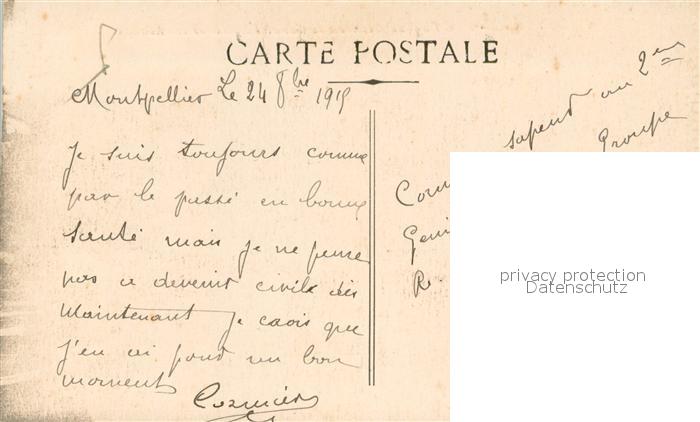 CARTE POSTALE
Montpellier Le 24 8bre 1915
Je suis toujours comme
par le passé en bonne
santé mais je ne pense
pas a devenir civile dès
Maintenant je crois que
j'en ai pour un bon
moment
Cormier
sapeur au 2em
Groupe
Geni
R.
privacy protection
Datenschutz